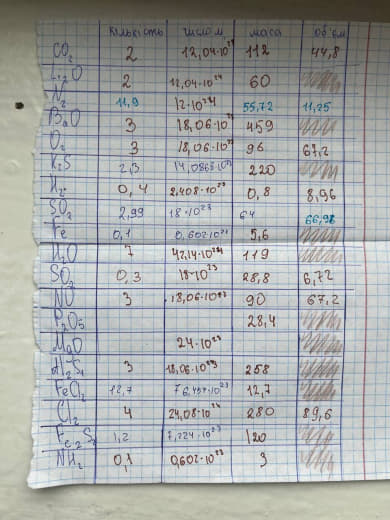 кількість число м. маса об'єм
CO₂ 2 12,04·10²³ 112 44,8
Li₂O 2 12,04·10²⁴ 60
N₂ 11,9 12·10²⁴ 55,72 11,25
B₂O 3 18,06·10²³ 459
O₂ 3 18,06·10²³ 96 67,2
K₂S 2,3 220
H₂ 0,4 2,408·10²³ 0,8 8,96
SO₂ 2,99 18·10²³ 64 66,98
Fe 0,1 0,602·10²⁴ 5,6
H₂O 7 42,14·10²⁴ 119
SO₃ 0,3 18·10²³ 28,8 6,72
NO 3 18,06·10²³ 90 67,2
P₂O₅ 28,4
MgO 24·10²³
3 18,06·10²³ 258
FeCl₂ 12,7 12,7
Cl₂ 4 24,08·10²⁴ 280 89,6
1,2 7,224·10²³ 120
NH₂ 0,1 0,602·10²³ 3